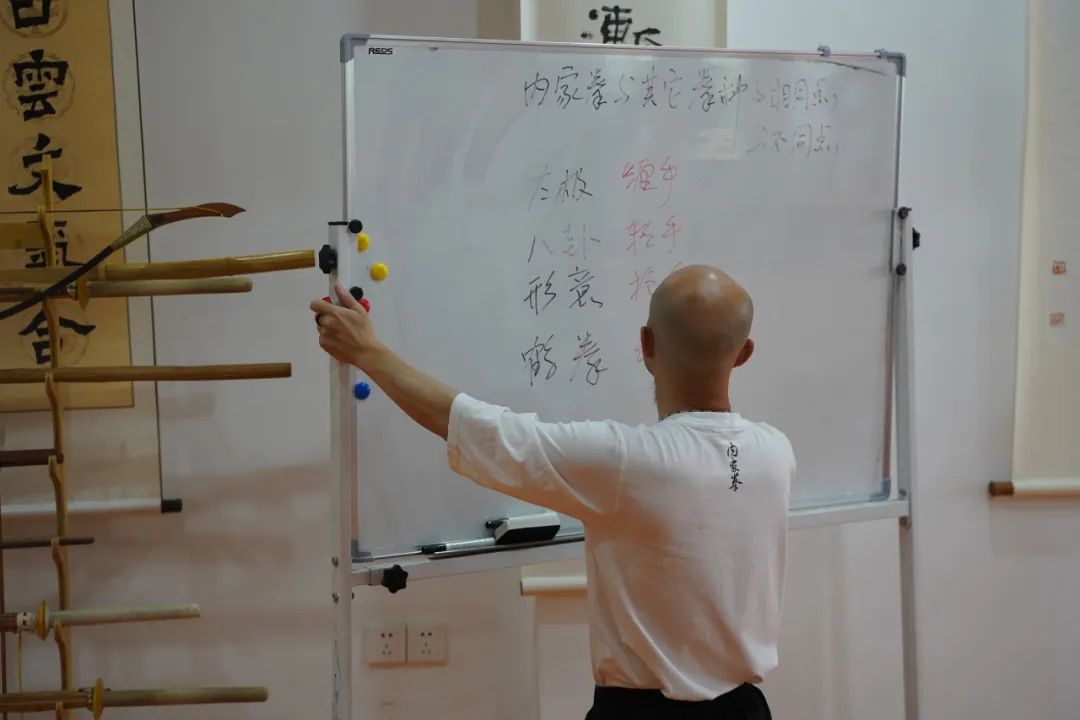 雲
文
氣
合
REDS
内家拳与其它拳种与相同点,
与不同点,
太极 缠手
八卦 轻手
形意
鹤拳
内家拳